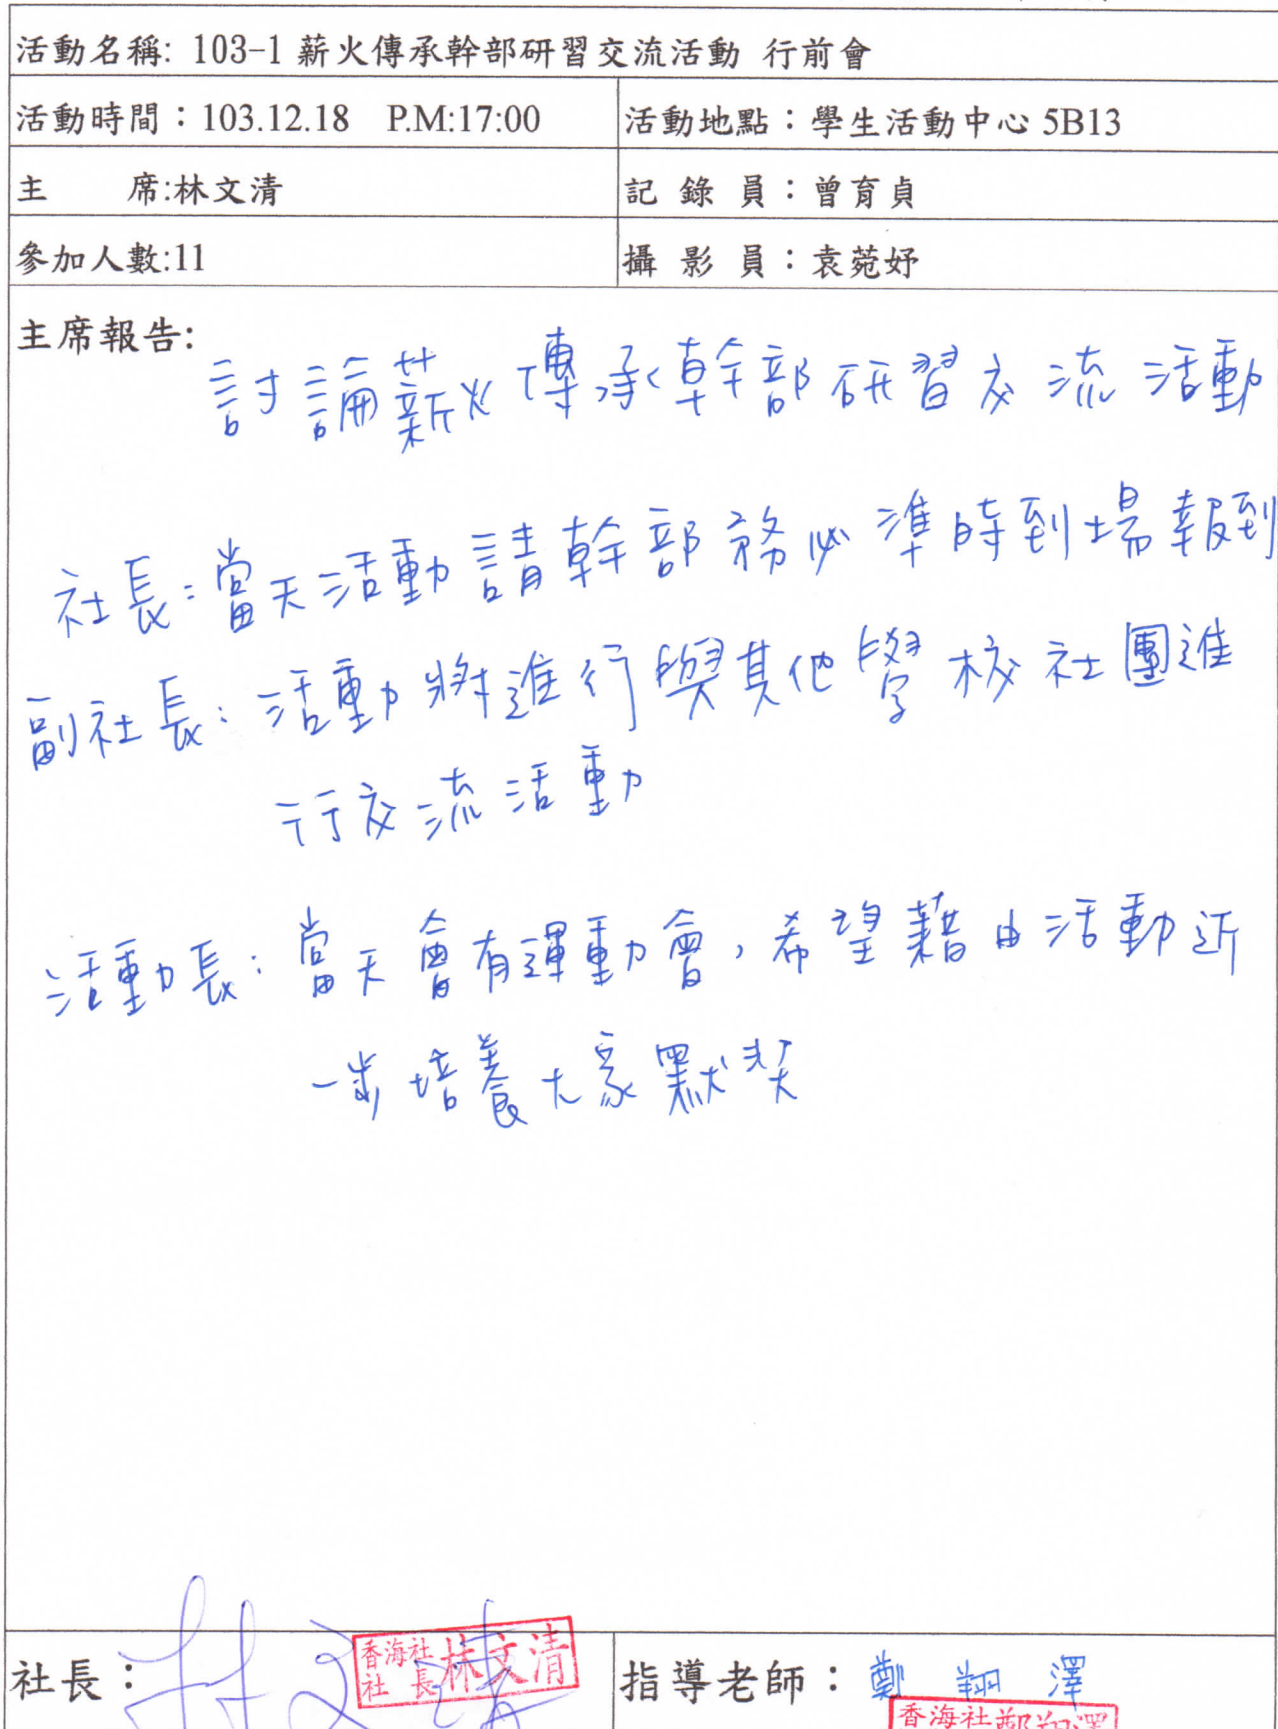 活動名稱: 103-1 薪火傳承幹部研習交流活動 行前會
活動時間：103.12.18 P.M:17:00 活動地點：學生活動中心 5B13
主 席:林文清 記 錄 員：曾育貞
參加人數:11 攝 影 員：袁菀妤
主席報告:
討論薪火傳承幹部研習交流活動
社長：當天活動請幹部務必準時到場報到
副社長：活動將進行與其他學校社團進
行交流活動
活動長：當天會有運動會，希望藉由活動近
一步培養大家默契
社長：林文清 香海社 社長 林文清 指導老師：鄭翔澤
香海社 鄭翔澤